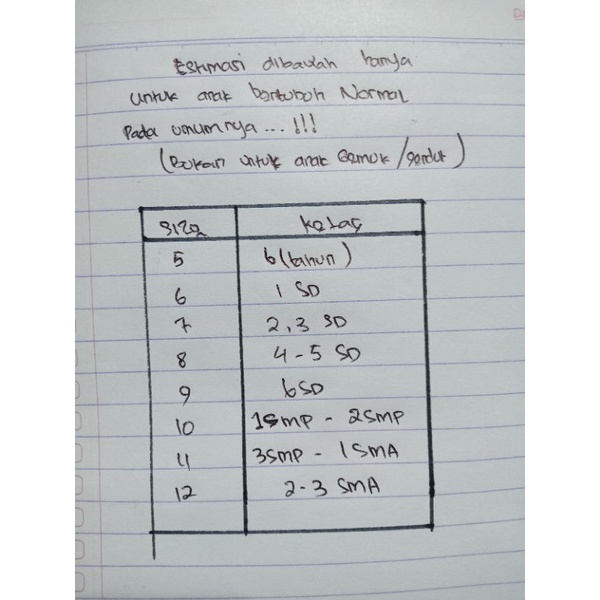 Estimasi dibawah hanya
untuk anak bertubuh Normal
Pada umumnya...!!!
(Bukan untuk anak Gemuk/gendut)
Size Kelas
5 6 (tahun)
6 1 SD
7 2,3 SD
8 4-5 SD
9 6 SD
10 1 SMP - 2 SMP
11 3 SMP - 1 SMA
12 2-3 SMA